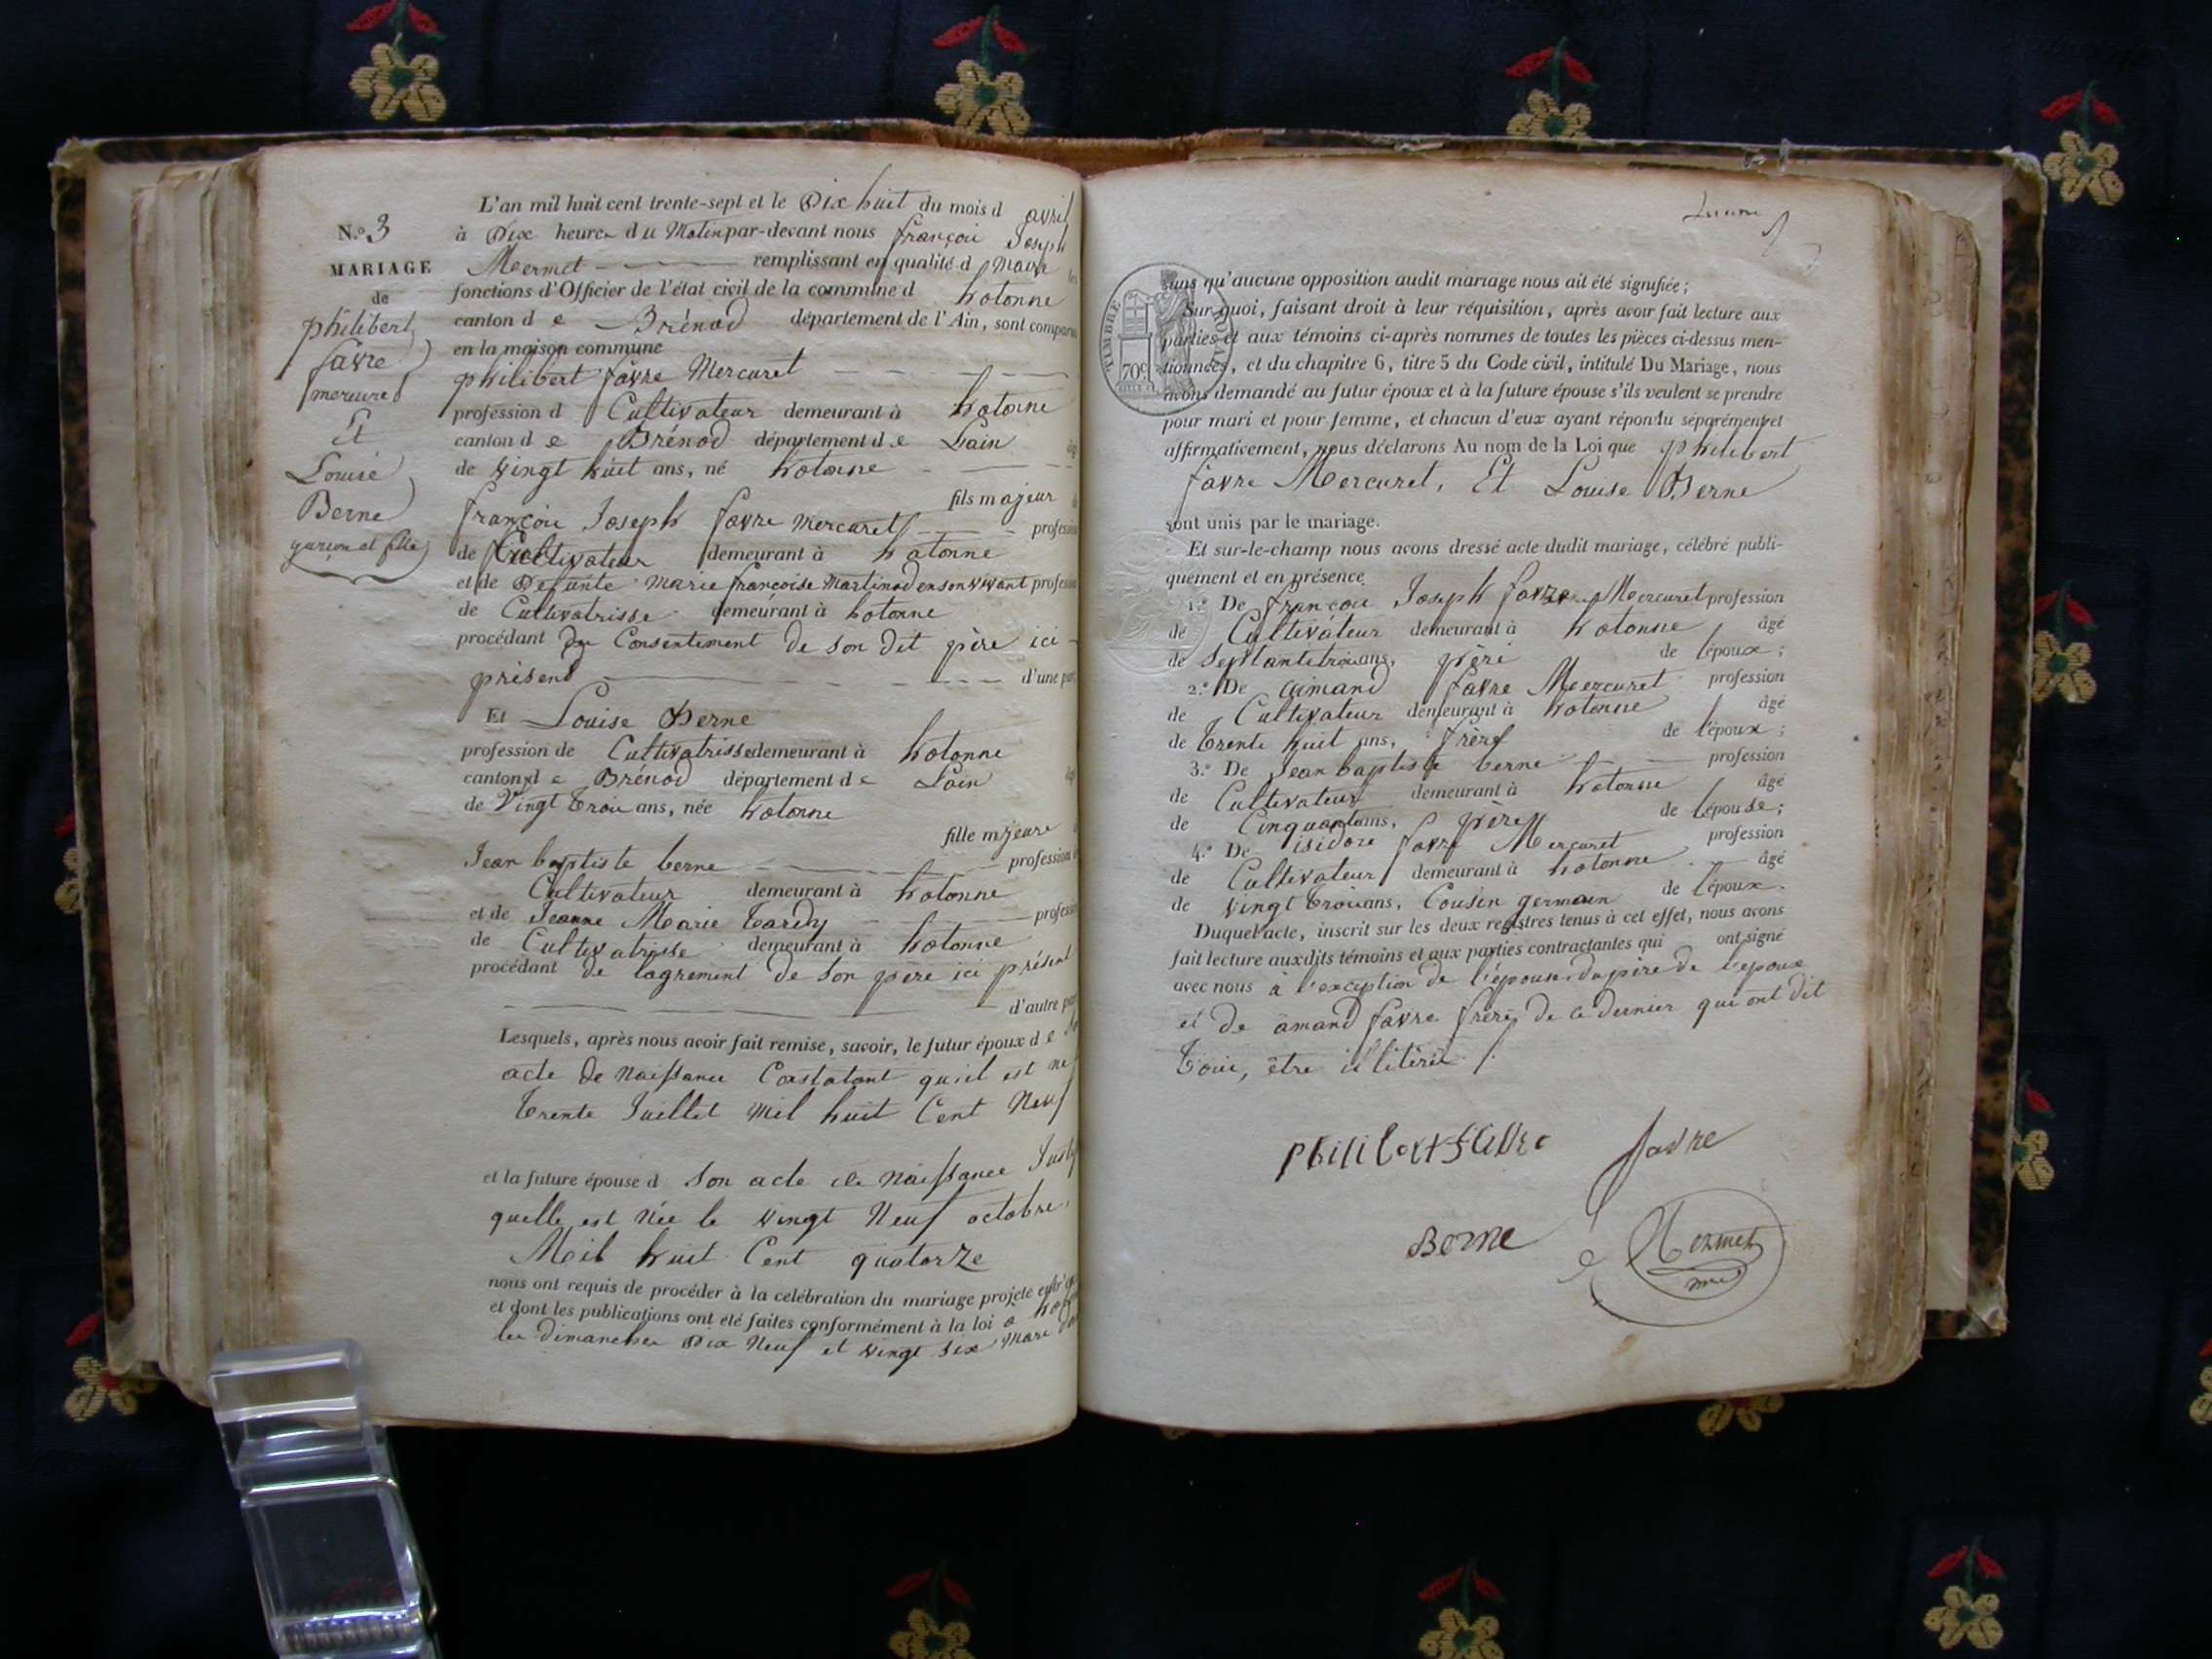 L'an mil huit cent trente-sept et le Dix huit du mois d avril
N.o 3
à Dix heures du Matin par-devant nous françois Joseph
MARIAGE
Mermet remplissant en qualité d Maire les
de
fonctions d'Officier de l'état civil de la commune d hotonne
philibert
canton d e Brénod département de l'Ain, sont comparus
favre
en la maison commune
mercuret
philibert favre Mercuret
Et
profession d Cultivateur demeurant à hotonne
Louise
canton d e Brénod département d e Lain
Berne
de vingt huit ans, né hotonne
garçon et fille
fils majeur
françois Joseph favre mercuret profession
de Cultivateur demeurant à hotonne
et de Defunte marie françoise Martinod en son vivant profession
de Cultivatrisse demeurant à hotonne
procédant du Consentement de son dit père ici
présend d'une part
Et Louise Berne
profession de Cultivatrisse demeurant à hotonne
canton d e Brénod département d e Lain
de vingt trois ans, née hotonne
fille majeure
Jean baptiste berne profession
Cultivateur demeurant à hotonne
et de Jeanne Marie tardy profession
de Cultivatrisse demeurant à hotonne
procédant de lagrement de son père ici présent
d'autre part
Lesquels, après nous avoir fait remise, savoir, le futur époux d e
acte de naissance Constatant qu'il est né
trente Juillet mil huit Cent Neuf
et la future épouse d son acte de naissance
quelle est née le vingt Neuf octobre
Mil huit Cent quatorze
nous ont requis de procéder à la celébration du mariage projeté
et dont les publications ont été faites conformément à la loi a
les dimanches Dix Neuf et vingt six mars
sans qu'aucune opposition audit mariage nous ait été signifiée;
Sur quoi, faisant droit à leur réquisition, après avoir fait lecture aux
parties et aux témoins ci-après nommes de toutes les pièces ci-dessus men-
tionnées, et du chapitre 6, titre 5 du Code civil, intitulé Du Mariage, nous
avons demandé au futur époux et à la future épouse s'ils veulent se prendre
pour mari et pour femme, et chacun d'eux ayant répondu séparément et
affirmativement, nous déclarons Au nom de la Loi que philibert
favre Mercuret, Et Louise Berne
sont unis par le mariage.
Et sur-le-champ nous avons dressé acte dudit mariage, célébré publi-
quement et en présence
1.o De françois Joseph favre Mercuret profession
de Cultivateur demeurant à hotonne âgé
de septante trois ans, père de l'époux;
2.o De aimand favre Mercuret profession
de Cultivateur demeurant à hotonne âgé
de trente huit ans, frère de l'époux;
3.o De Jean baptiste berne profession
de Cultivateur demeurant à hotonne âgé
de Cinquante ans, père de lépouse;
4.o De isidore favre Mercuret profession
de Cultivateur demeurant à hotonne âgé
de vingt trois ans, Cousin germain de l'époux.
Duquel acte, inscrit sur les deux registres tenus à cet effet, nous avons
fait lecture auxdits témoins et aux parties contractantes qui ont signé
avec nous à l'exception de l'épouse, du père de l'epoux
et de amand favre frère de ce dernier qui ont dit
tous, être illitéré
TIMBRE ROYAL
70c
philibert favre favre
Berne Mermet